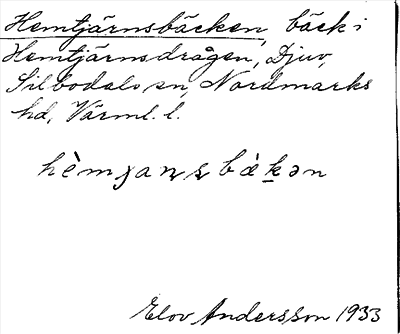 Hemtjärnsbäcken, bäck i
Hemtjärnsdragen, Djuv,
Silbodals sn, Nordmarks
hd, Värml. l.
hèmȷanʂbækən
Elov Andersson 1933